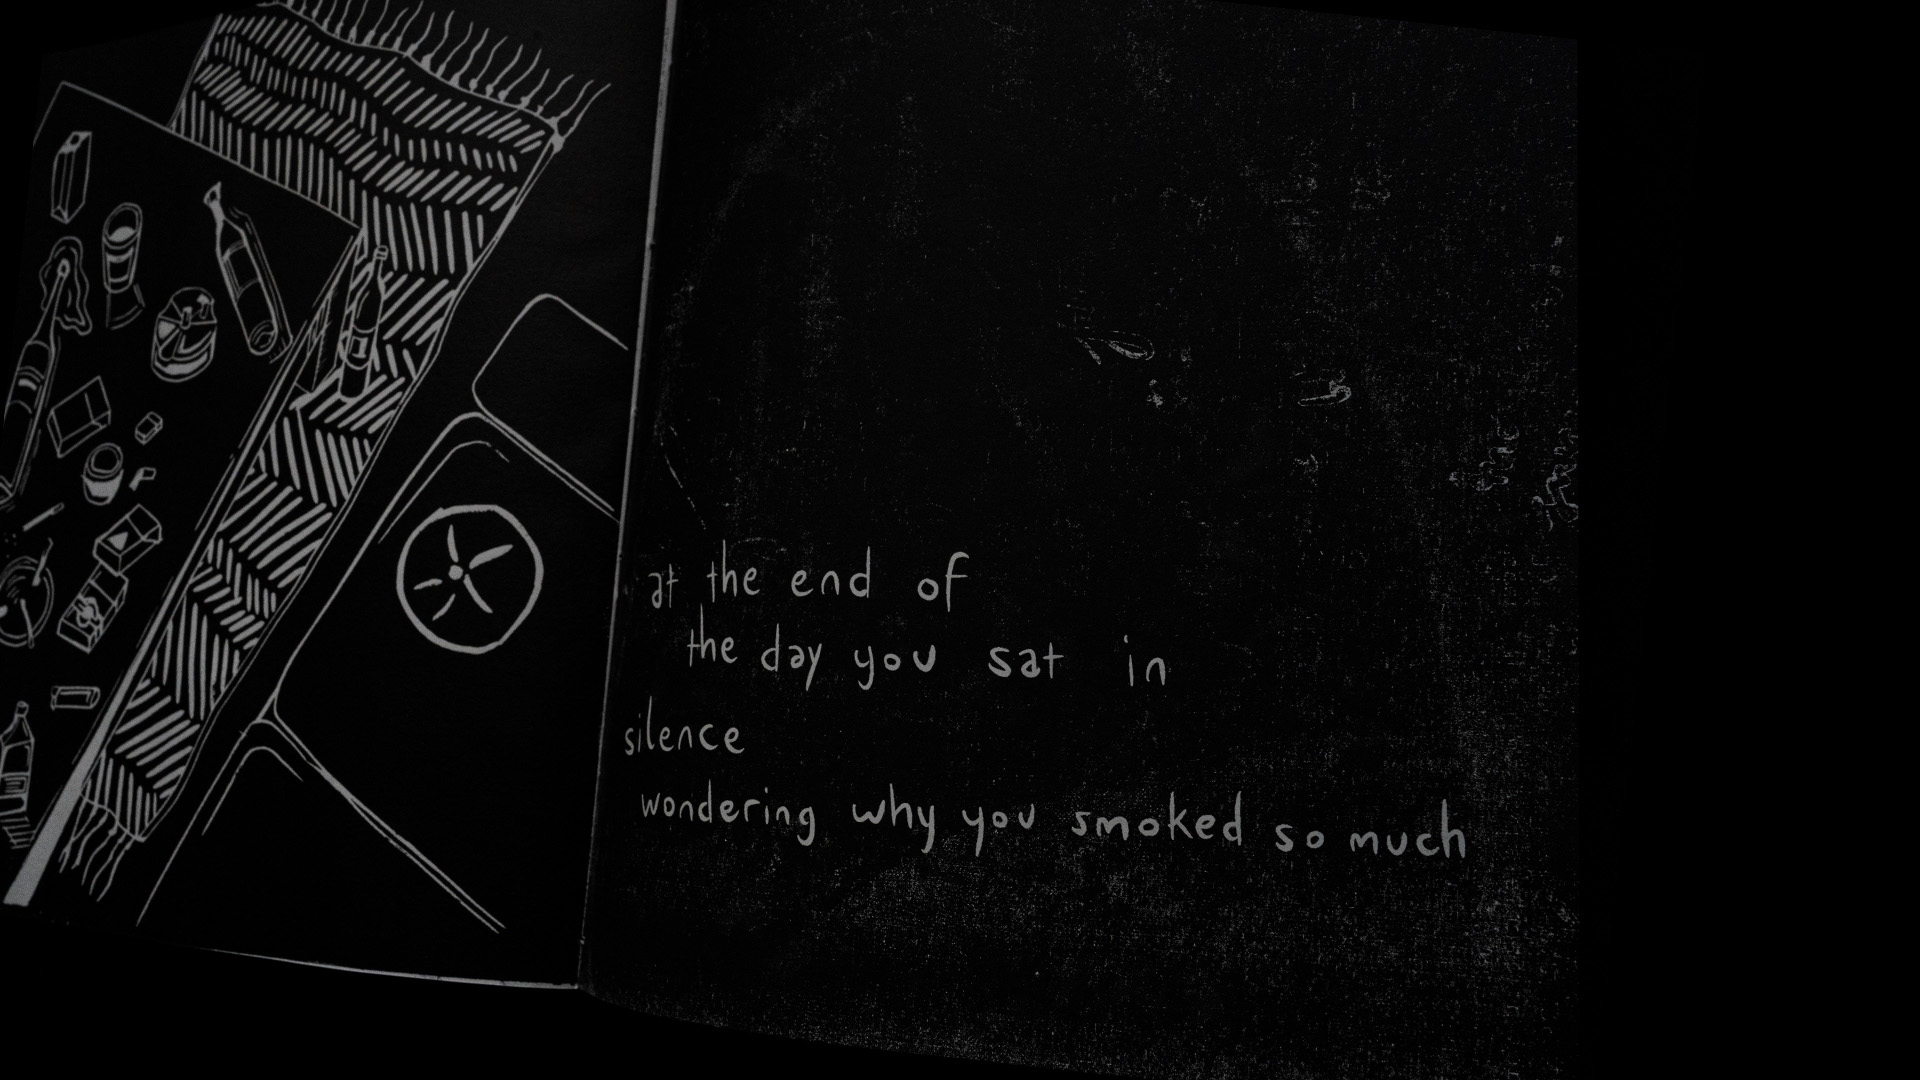 at the end of
the day you sat in
silence
wondering why you smoked so much